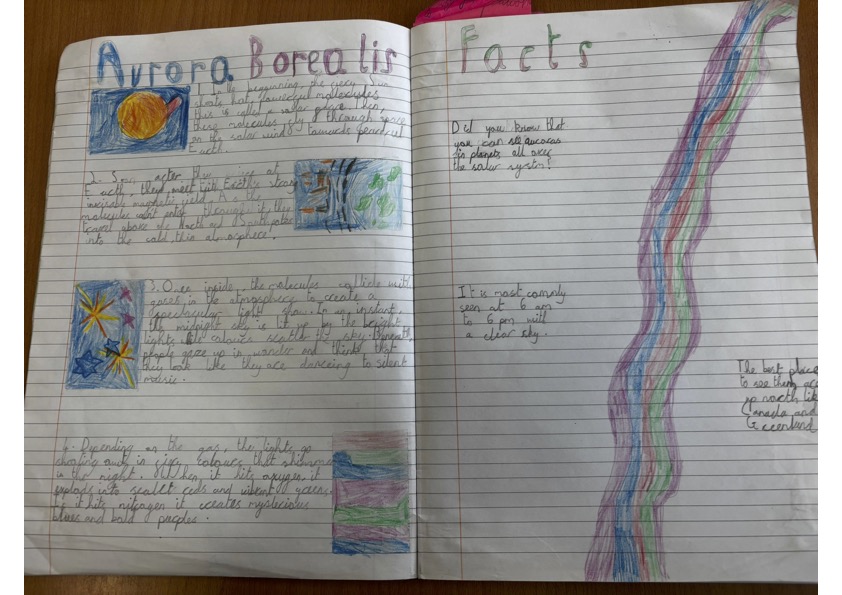 Aurora Borealis
1. In the beginning, the fiery Sun
shoots hot, powerful molecules
this is called a solar flare. Then,
these molecules fly through space
on the solar wind towards peaceful
Earth.
2. Soon after they arrive at
Earth, they meet with Earth's strong
invisable magnetic field. As the
molecules can't enter through it, they
travel above the North and South poles
into the cold, thin atmosphere.
3. Once inside, the molecules collide with
gases in the atmosphere to create a
spectacular light show. In an instant,
the midnight sky is lit up by the bright
lights, the colours scatter the sky. Beneath,
people gaze up in wonder and think that
they look like they are dancing to silent
music.
4. Depending on the gas, the lights go
shooting out in fiery colours that shimmer
in the night. When it hits oxygen, it
explods into scarlet reds and vibrent greens.
If it hits nitrogen it creates mysterious
blues and bold purples.
Facts
Did you know that
you can see auroras
on planets all over
the solar system!
It is most commonly
seen at 6 am
to 6 pm with
a clear sky.
The best place
to see them are
up north like
Canada and
Greenland